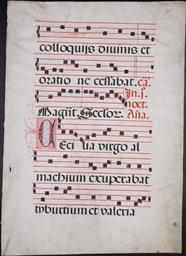 colloquijs diuinis et
oratione cessabat. ca.
In .j.
noct.
Magnt. Seclor. Ana.
Ceci lia virgo al
machium exuperabat
tyburtium et valeria